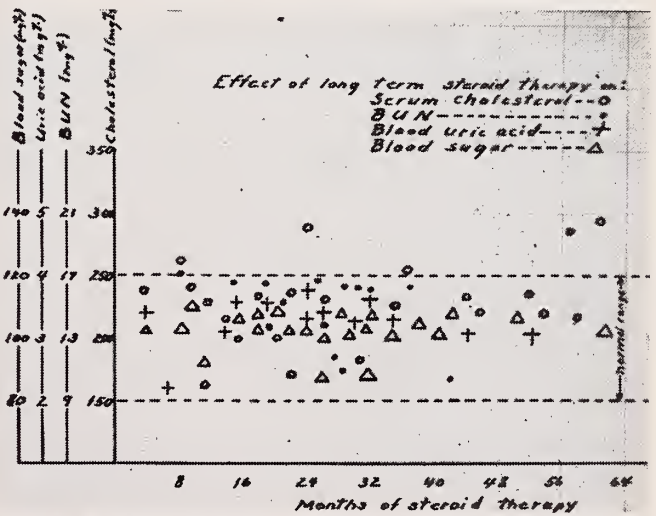 Blood sugar (mg%)
Uric acid (mg%)
BUN (mg%)
Cholesterol (mg%)
Effect of long term steroid therapy on:
Serum Cholesterol--o
BUN----------•
Blood uric acid----+
Blood sugar-------△
350
140 5 21 300
120 4 17 250
100 3 13 200
80 2 9 150
normal range
8 16 24 32 40 48 56 64
Months of steroid therapy